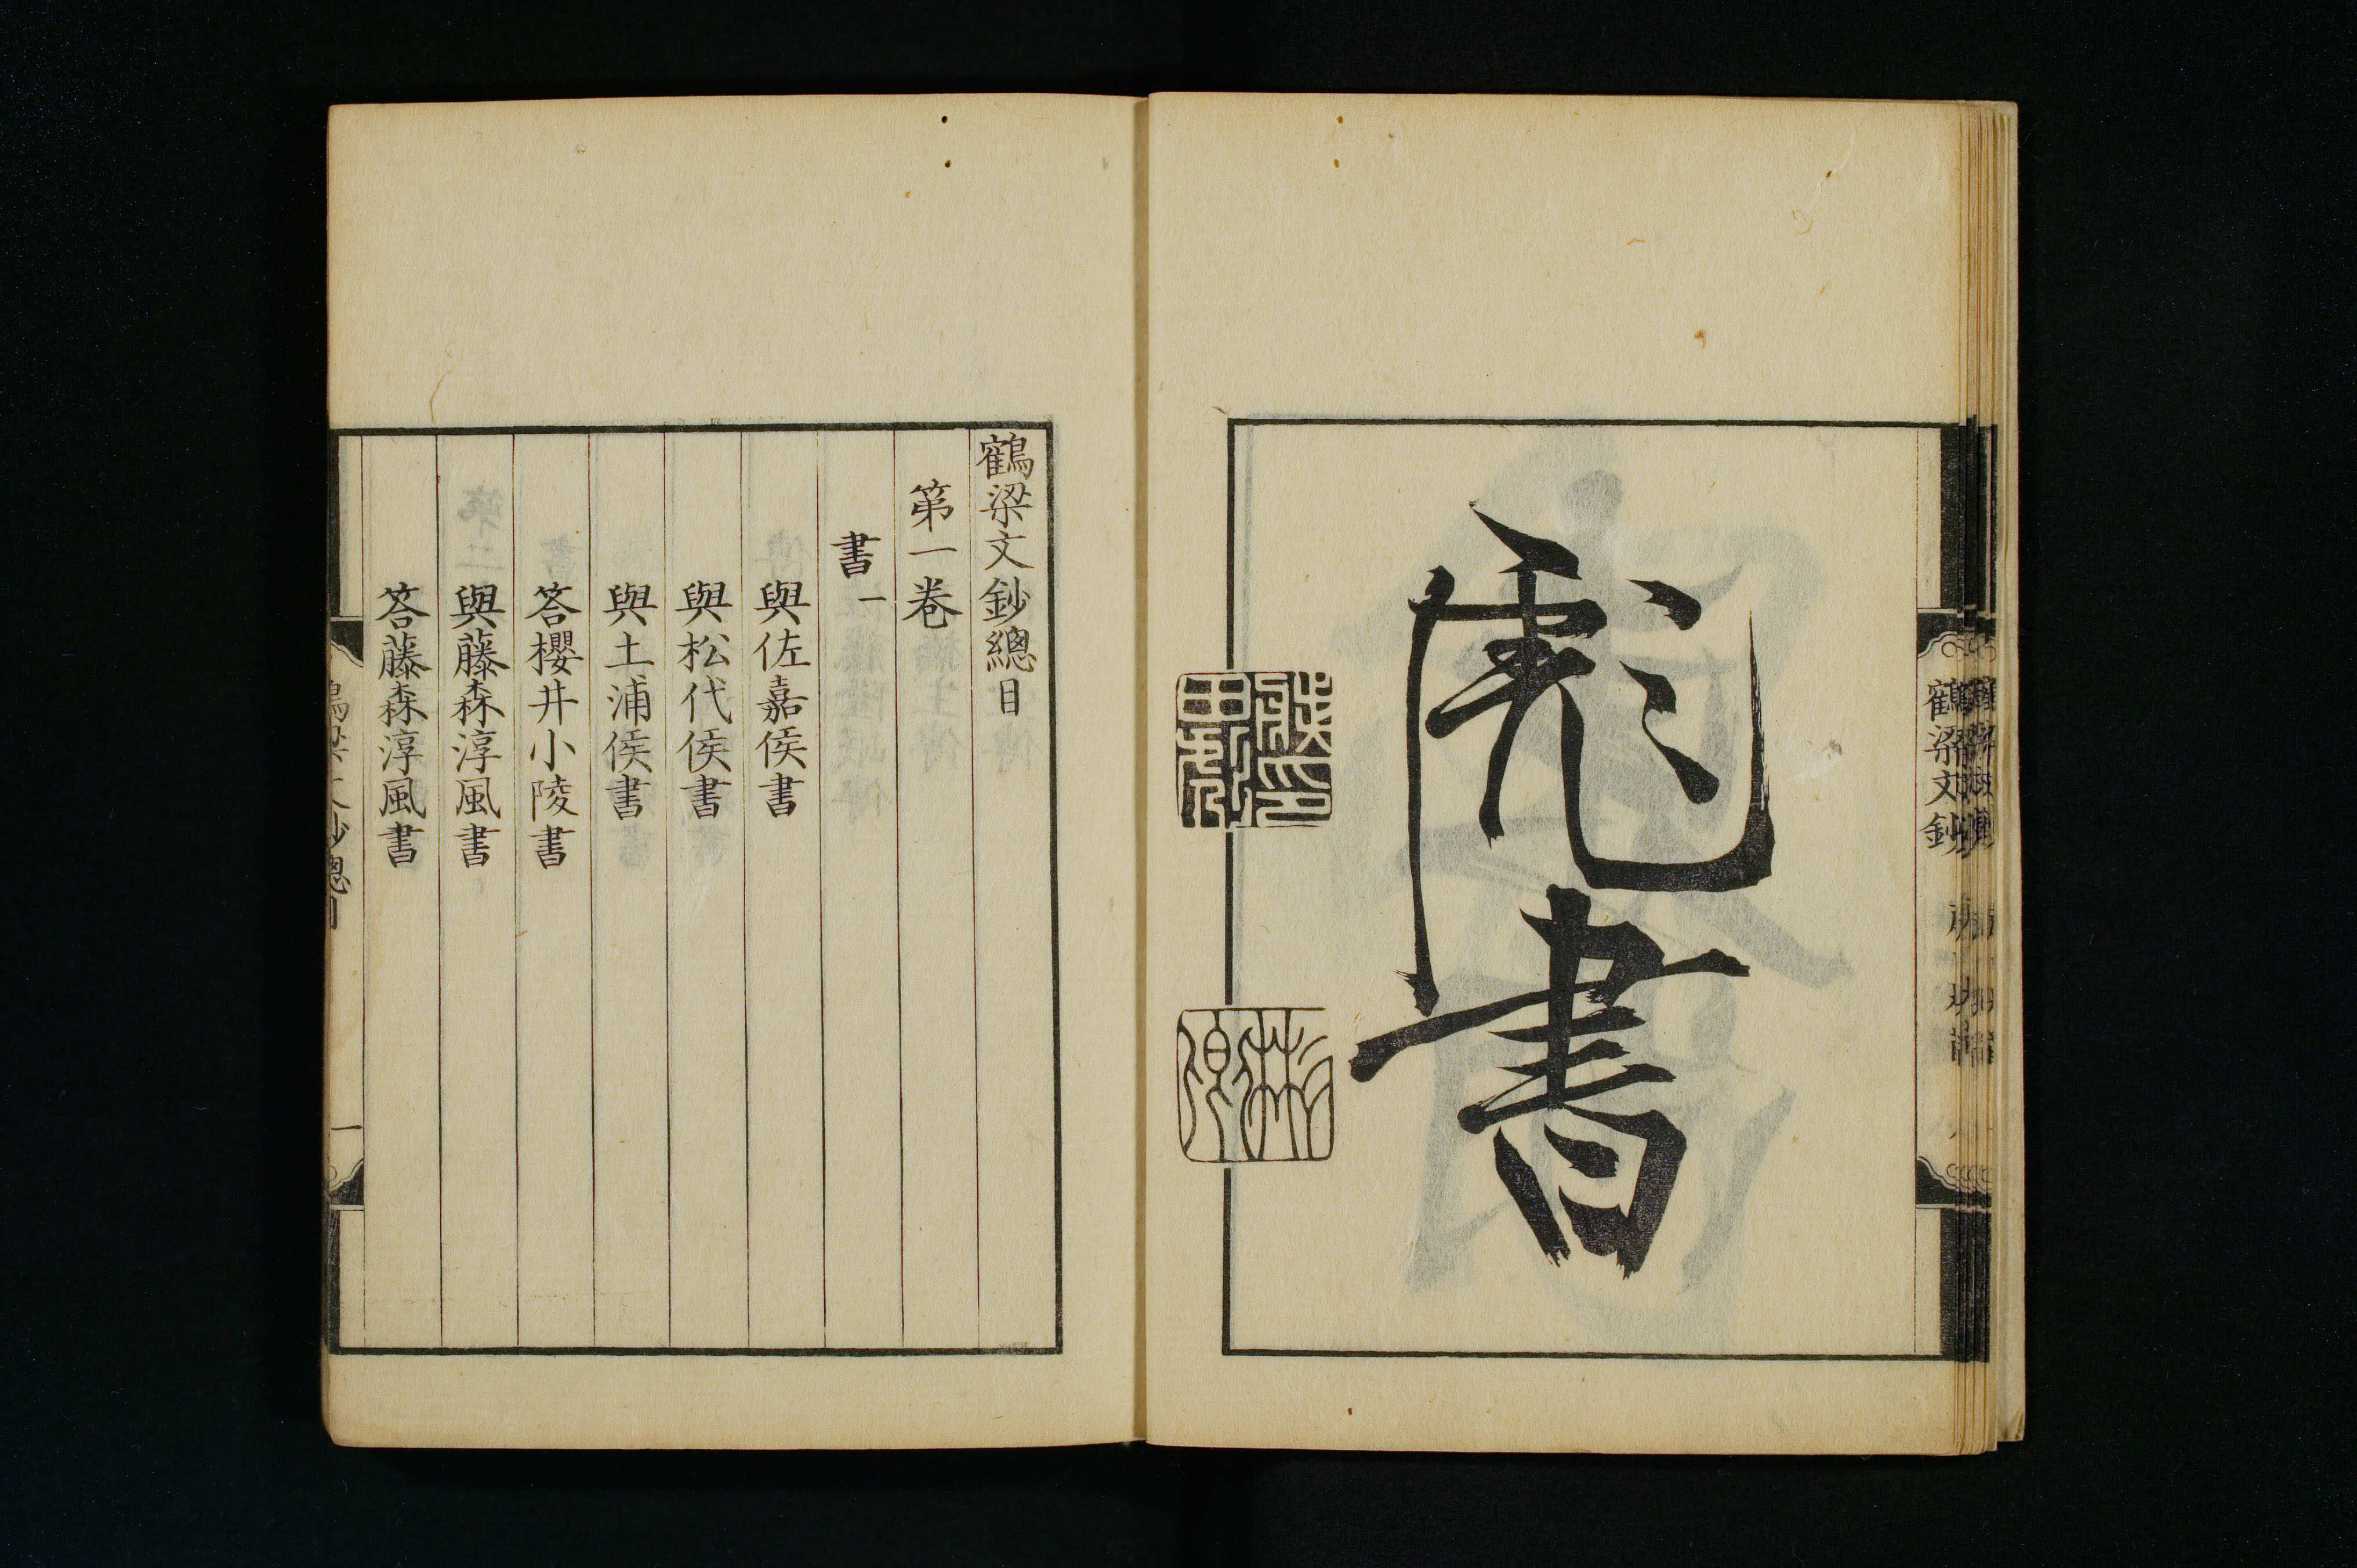 彪書
鶴梁文鈔
鶴梁文鈔總目
第一卷
書一
與佐嘉侯書
與松代侯書
與土浦侯書
答櫻井小陵書
與藤森淳風書
答藤森淳風書
鶴梁文鈔總目 一